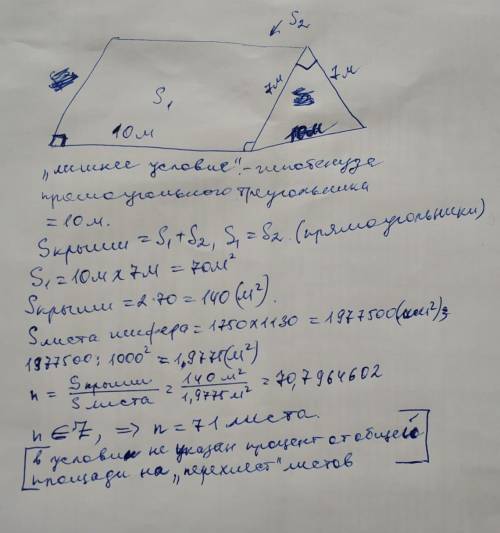 S₂
S₁
7м
7м
10м
10м
"лишнее условие" - гипотенуза
прямоугольного треугольника
= 10 м.
Sкрыши = S₁ + S₂, S₁ = S₂. (прямоугольники)
S₁ = 10м x 7м = 70м²
Sкрыши = 2·70 = 140 (м²).
Sлиста шифера = 1750 x 1130 = 1977500 (мм²);
1977500 : 1000² = 1,9775 (м²)
n = Sкрыши / Sлиста = 140 м² / 1,9775 м² = 70,7964602
n ∈ Z, ⇒ n = 71 листа.
в условии не указан процент от общей
площади на "перехлест" листов